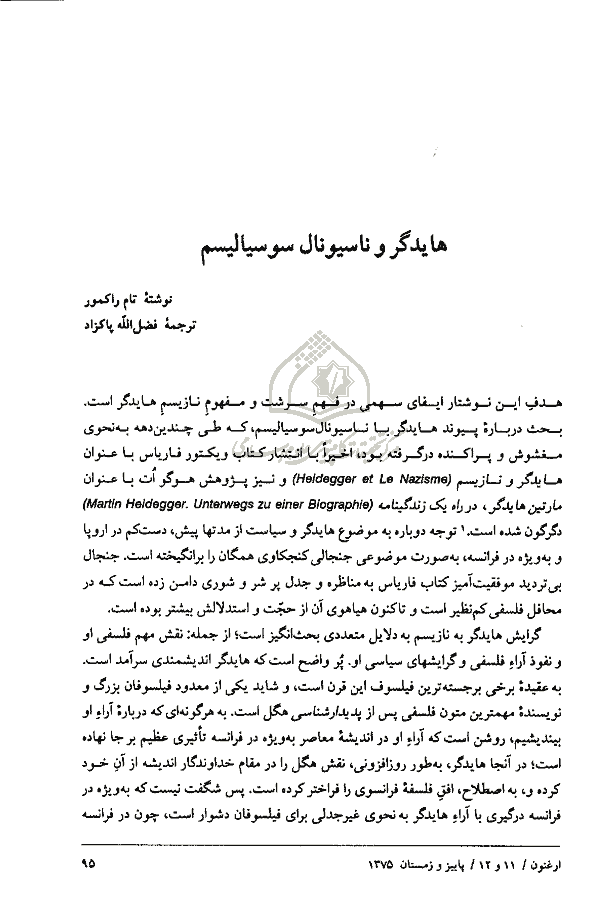 هایدگر و ناسیونال سوسیالیسم
نوشتهٔ تام راکمور
ترجمهٔ فضل‌الله پاکزاد
هدفِ این نوشتار ایفای سهمی در فهم سرشت و مفهوم نازیسمِ هایدگر است.
بحث دربارهٔ پیوند هایدگر با ناسیونال‌سوسیالیسم، که طی چندین‌دهه به‌نحوی
مغشوش و پراکنده درگرفته بود، اخیراً با انتشار کتاب ویکتور فاریاس با عنوان
هایدگر و نازیسم (Heidegger et Le Nazisme) و نیز پژوهش هوگو اُت با عنوان
مارتین هایدگر، در راه یک زندگینامه (Martin Heidegger. Unterwegs zu einer Biographie)
دگرگون شده است.۱ توجه دوباره به موضوع هایدگر و سیاست از مدتها پیش، دست‌کم در اروپا
و به‌ویژه در فرانسه، به‌صورت موضوعی جنجالی کنجکاوی همگان را برانگیخته است. جنجال
بی‌تردید موفقیت‌آمیز کتاب فاریاس به مناظره و جدل پر شر و شوری دامن زده است که در
محافل فلسفی کم‌نظیر است و تاکنون هیاهوی آن از حجّت و استدلالش بیشتر بوده است.
گرایش هایدگر به نازیسم به دلایل متعددی بحث‌انگیز است؛ از جمله: نقش مهم فلسفی او
و نفوذ آراءِ فلسفی و گرایشهای سیاسی او. پُر واضح است که هایدگر اندیشمندی سرآمد است.
به عقیدهٔ برخی برجسته‌ترین فیلسوف این قرن است، و شاید یکی از معدود فیلسوفان بزرگ و
نویسندهٔ مهمترین متون فلسفی پس از پدیدارشناسی هگل است. به هرگونه‌ای که دربارهٔ آراءِ او
بیندیشیم، روشن است که آراءِ او در اندیشهٔ معاصر به‌ویژه در فرانسه تأثیری عظیم بر جا نهاده
است؛ در آنجا هایدگر، به‌طور روزافزونی، نقش هگل را در مقام خداوندگار اندیشه از آنِ خود
کرده و، به اصطلاح، افقِ فلسفهٔ فرانسوی را فراختر کرده است. پس شگفت نیست که به‌ویژه در
فرانسه درگیری با آراءِ هایدگر به نحوی غیرجدلی برای فیلسوفان دشوار است، چون در فرانسه
ارغنون / ۱۱ و ۱۲ / پاییز و زمستان ۱۳۷۵
۹۵